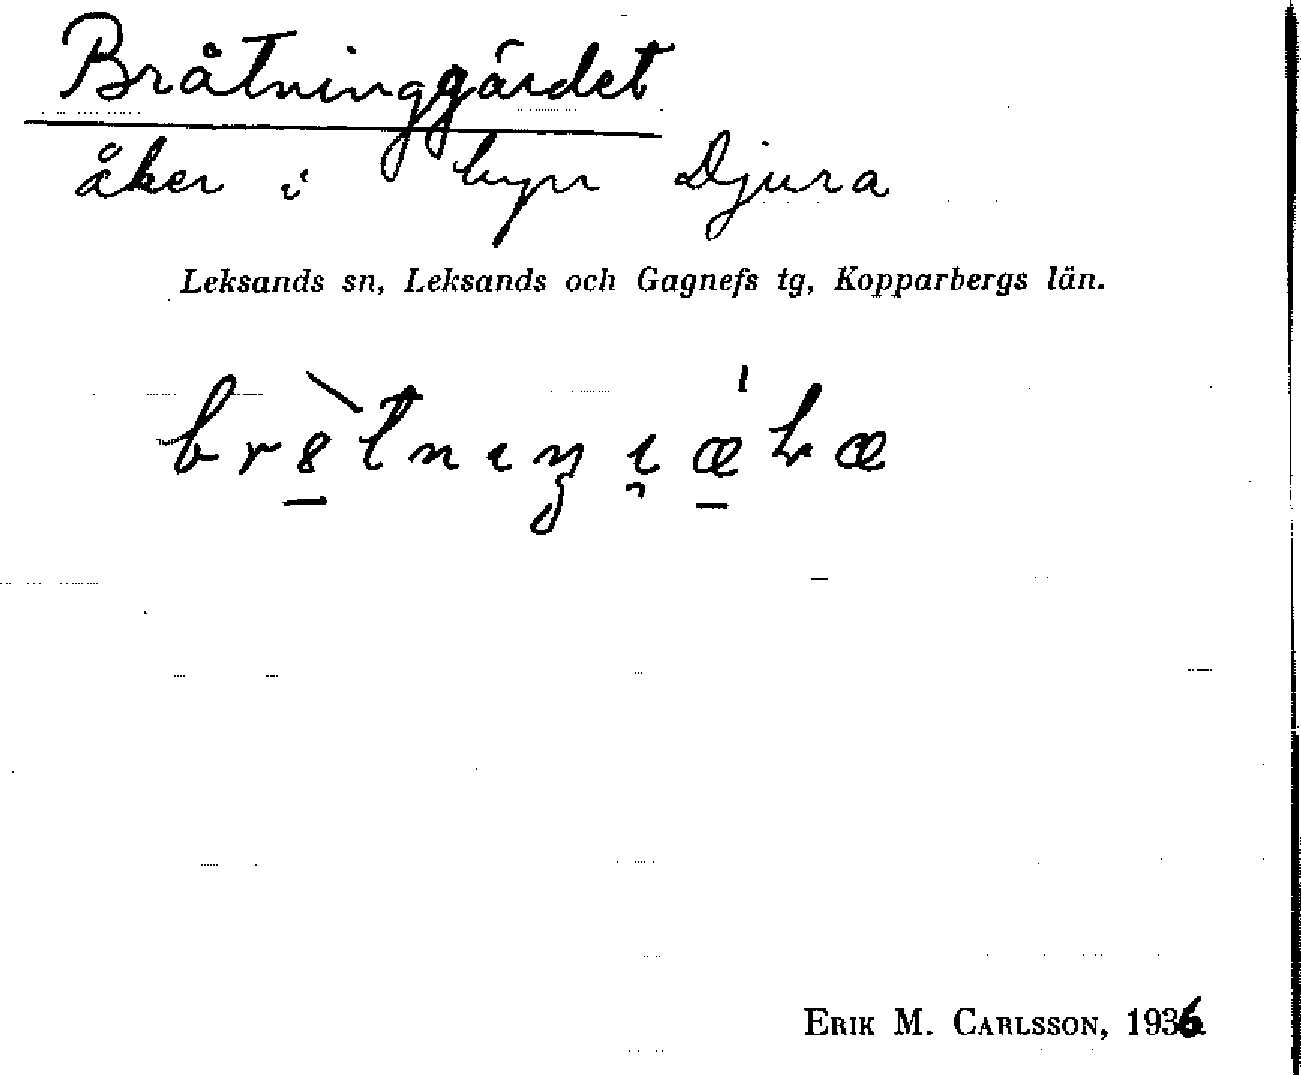 Bråtninggärdet
åker i byn Djura
Leksands sn, Leksands och Gagnefs tg, Kopparbergs län.
ERIK M. CARLSSON, 1936